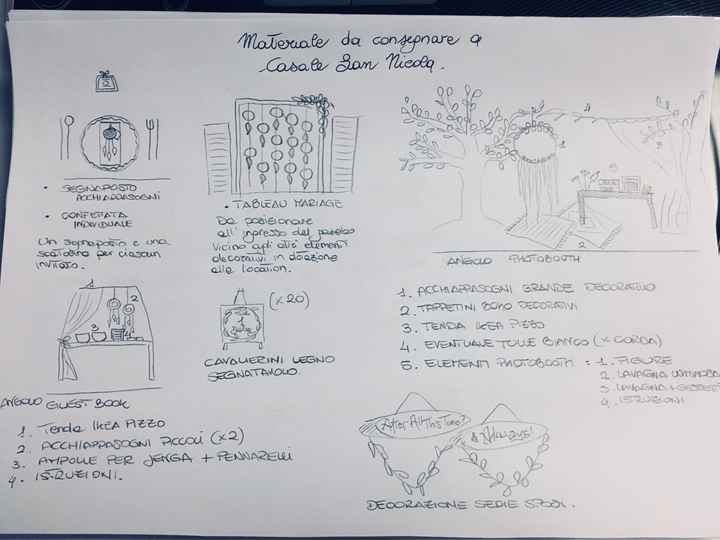 Materiale da consegnare a
Casale San Nicola.
2
• SEGNAPOSTO
ACCHIAPPASOGNI
• CONFETTATA
INDIVIDUALE
Un segnaposto e una
scatolina per ciascun
invitato.
• TABLEAU MARIAGE
Da posizionare
all' ingresso del
vicino agli altri elementi
decorativi in dotazione
alla location.
ANGOLO PHOTOBOOTH
1. ACCHIAPPASOGNI GRANDE DECORATIVO
2. TAPPETINI BOHO DECORATIVI
3. TENDA IKEA PIZZO
4. EVENTUALE TULLE BIANCO (+ CORDA)
5. ELEMENTI PHOTOBOOTH : 1. FIGURE
2. LAVAGNA
3. LAVAGNA + GESSETTI
4. ISTRUZIONI
(x 20)
CAVALIERINI LEGNO
SEGNATAVOLO.
ANGOLO GUEST BOOK
1. Tenda IKEA PIZZO
2. ACCHIAPPASOGNI PICCOLI (x2)
3. AMPOLLE PER JENGA + PENNARELLI
4. ISTRUZIONI.
After All This Time?
Always!
DECORAZIONE SEDIE SPOSI.